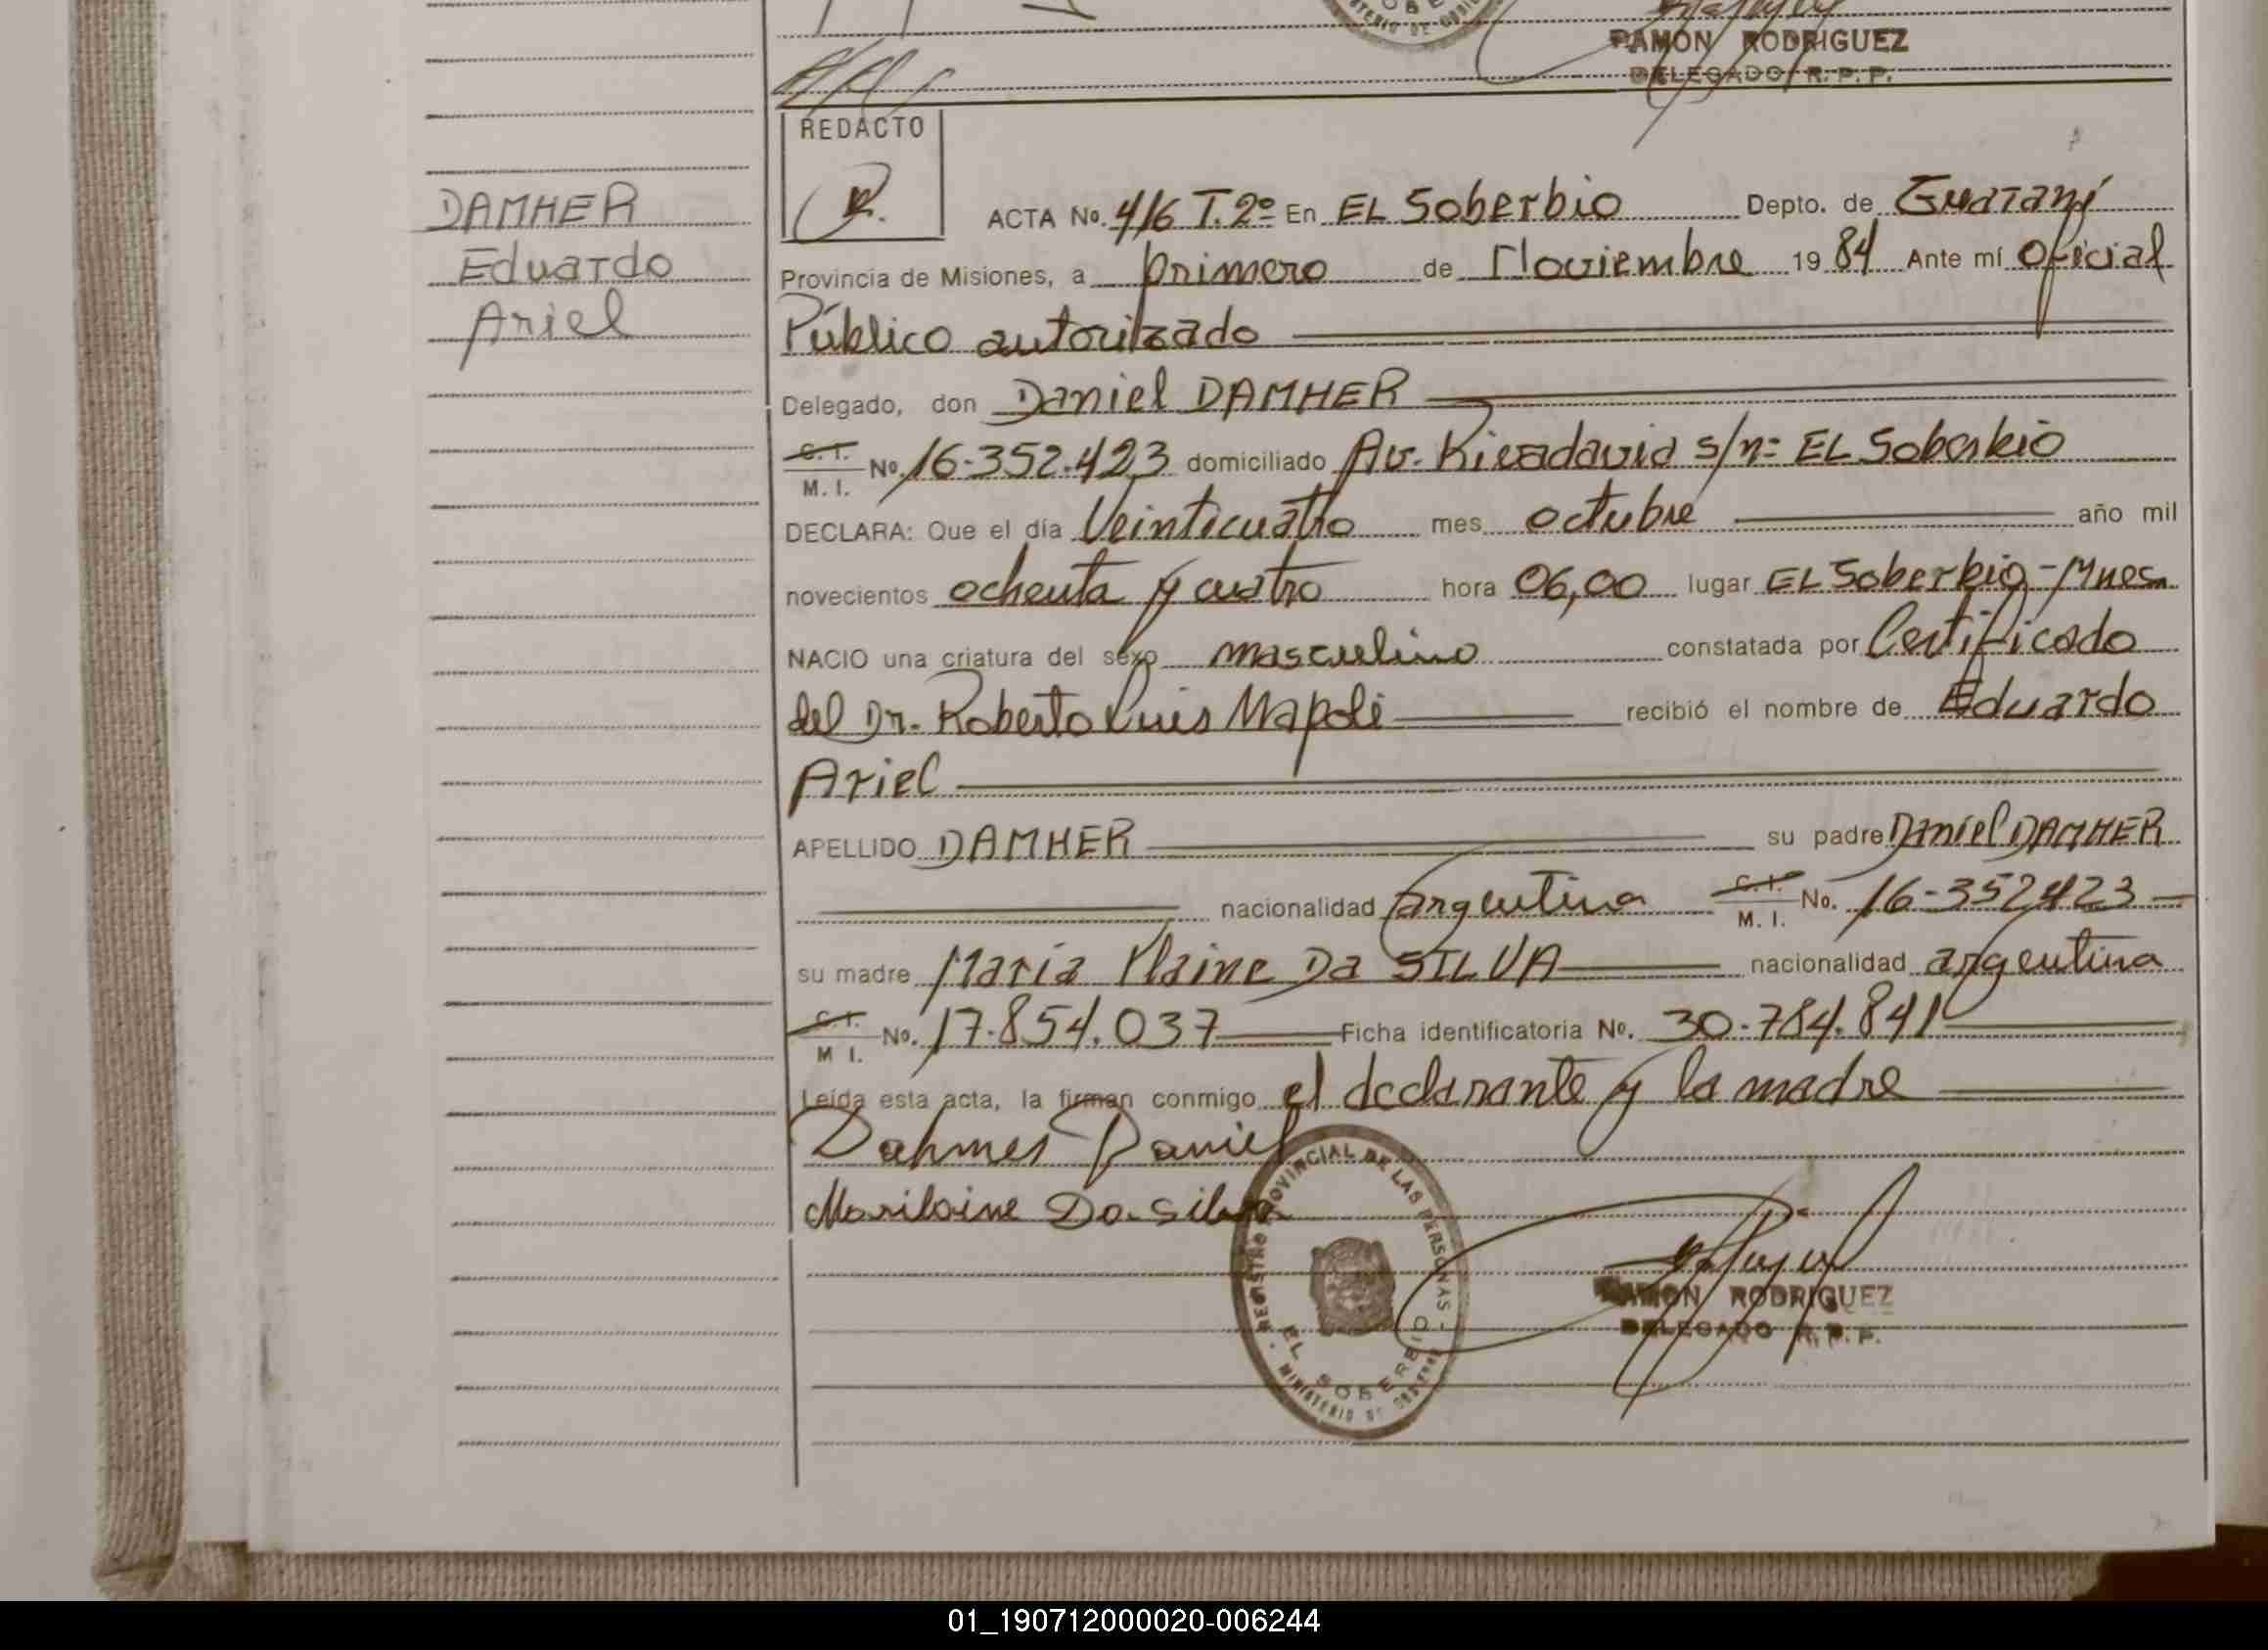 RAMON RODRIGUEZ
DELEGADO R. P. P.
REDACTO
DAMHER
Eduardo
Ariel
ACTA No. 416 T. 2º En EL Soberbio Depto. de Guaraní
Provincia de Misiones, a primero de Noviembre 19 84 Ante mí Oficial
Público autorizado
Delegado, don Daniel DAMHER
C. I.
M. I. No. 16-352.423 domiciliado Av. Rivadavia s/n= EL Soberbio
DECLARA: Que el día Veinticuatro mes octubre año mil
novecientos ochenta y cuatro hora 06,00 lugar EL Soberbio-Mnes.
NACIO una criatura del sexo masculino constatada por Certificado
del Dr. Roberto Luis Napoli recibió el nombre de Eduardo
Ariel
APELLIDO DAMHER su padre Daniel DAMHER
nacionalidad argentina C. I. M. I. No. 16-352423
su madre María Ilaine Da SILVA nacionalidad argentina
C. I.
M I. No. 17.854.037 Ficha identificatoria No. 30.784.841
Leída esta acta, la firman conmigo el declarante y la madre
Dahmer Daniel
Marilaine Da Silva
REGISTRO PROVINCIAL DE LAS PERSONAS
EL SOBERBIO
MINISTERIO DE GOBIERNO
RAMON RODRIGUEZ
DELEGADO R. P. P.
01_190712000020-006244